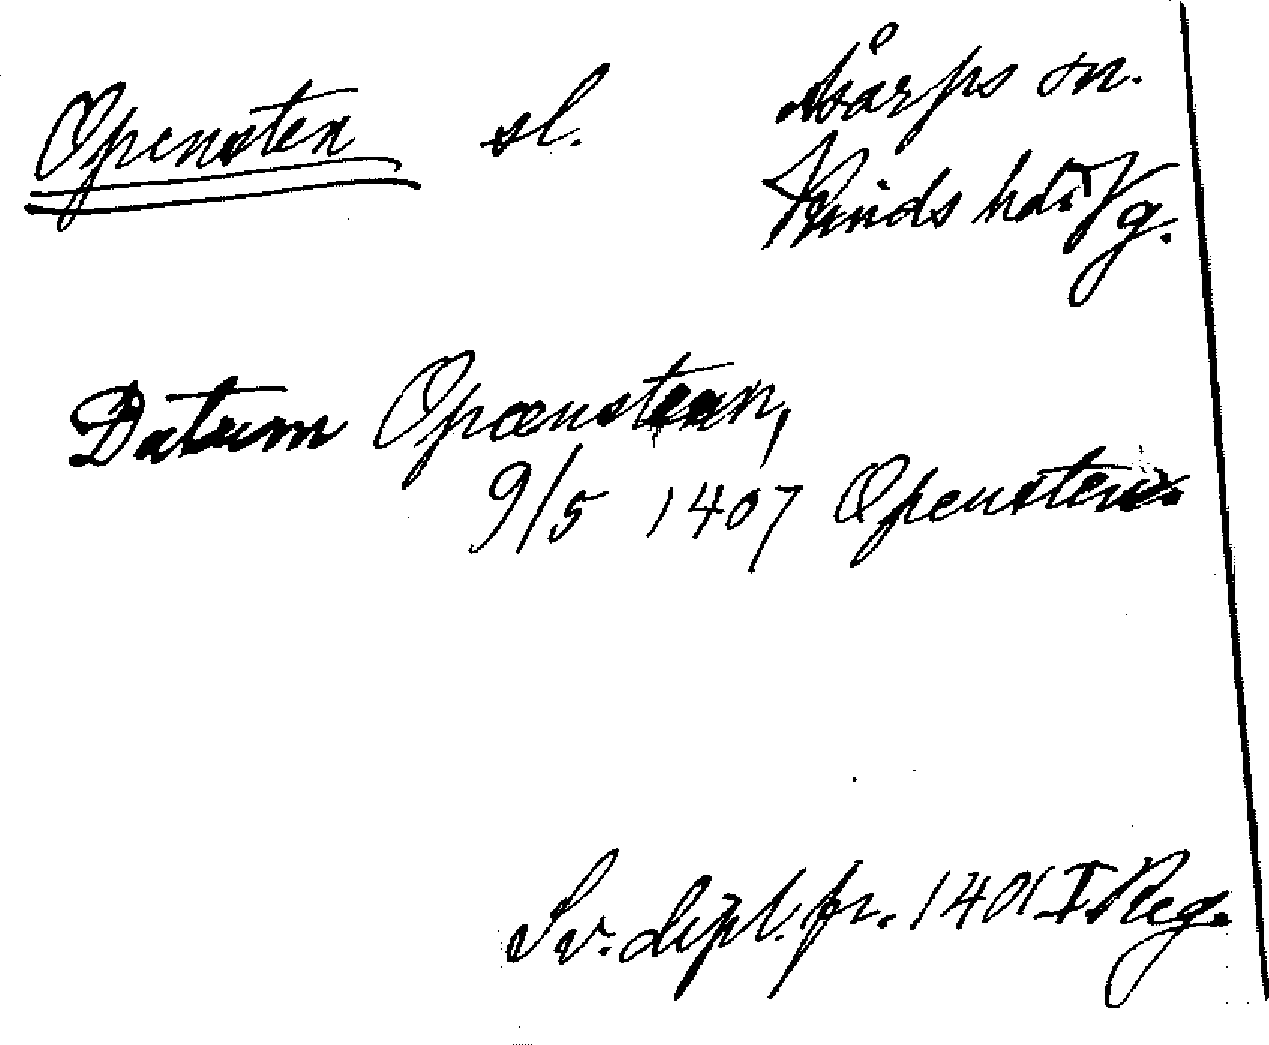 Opensten sl. Kårps sn.
Kinds hd. Vg.
Datum Opœnsteen,
9/5 1407 Openstens.
Sv. dipl. fr. 1401 I Reg.